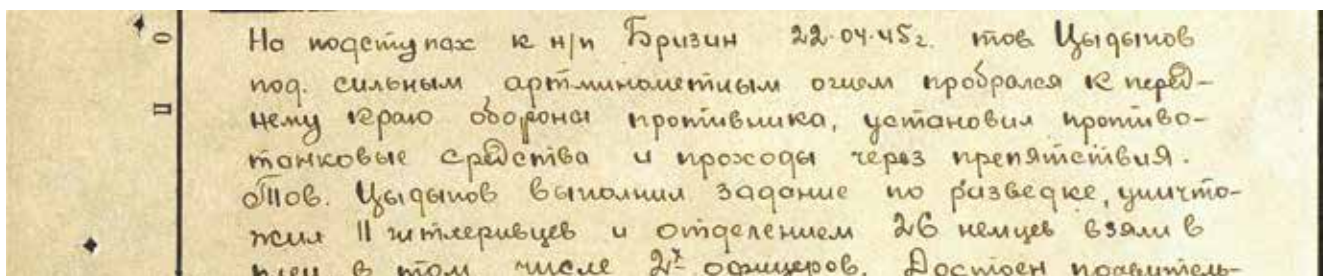 На подступах к н/п Бризин 22.04.45г. тов Цыдыпов
под. сильным артминометным огнем пробрался к перед-
нему краю обороны противника, установил противо-
танковые средства и проходы через препятствия.
Тов. Цыдыпов выполнил задание по разведке, уничто-
жил 11 гитлеривцев и отделением 26 немцев взяли в
плен в том числе 2х офицеров. Достоен правитель-